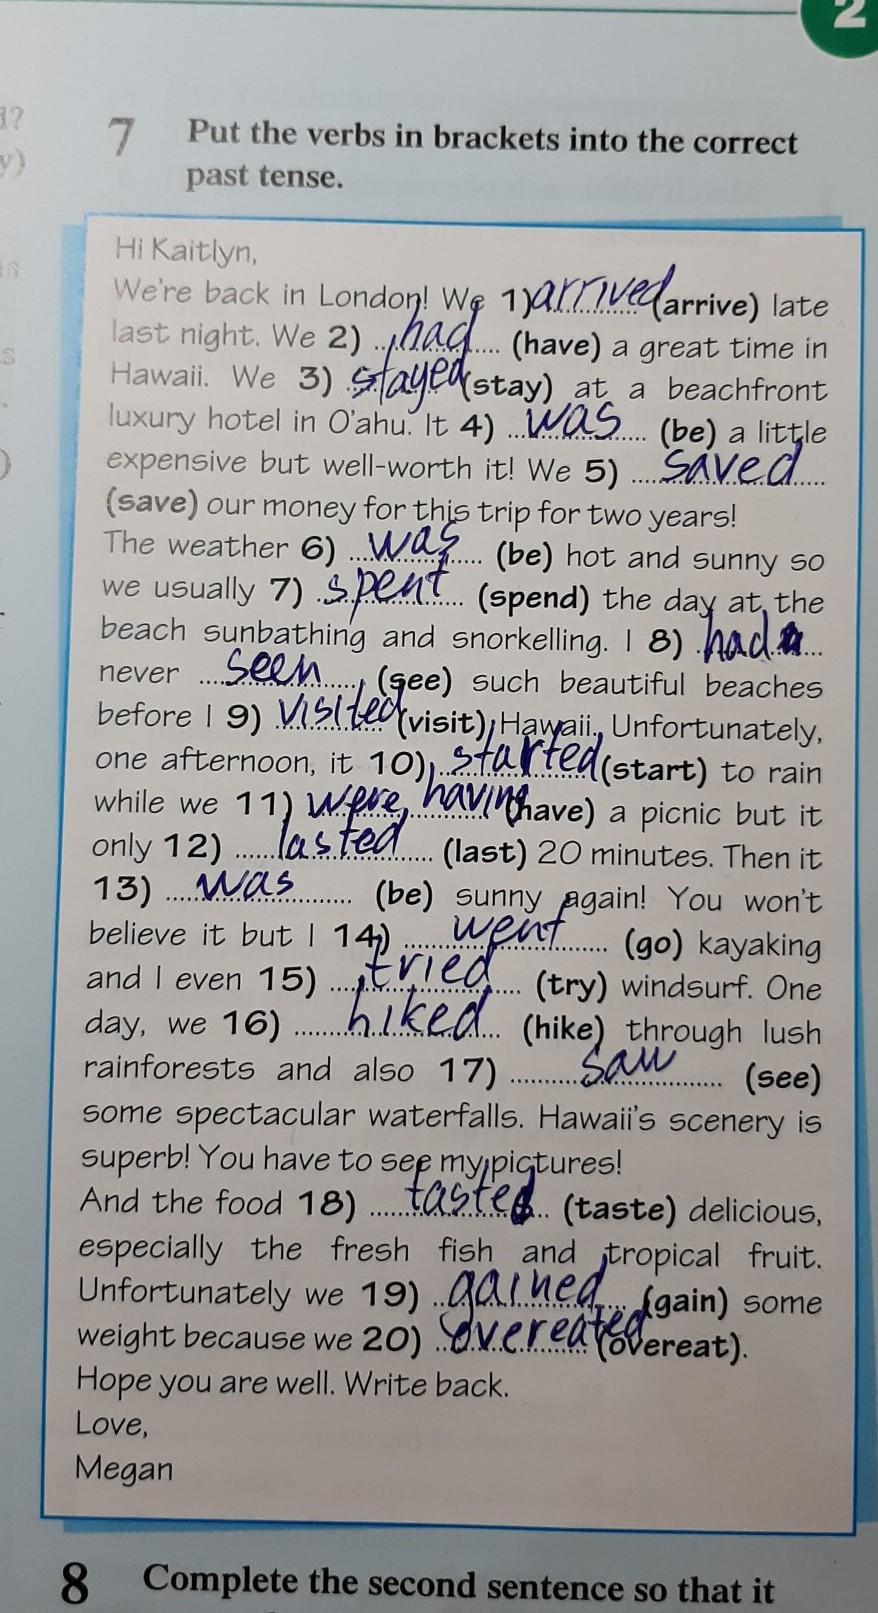 2
d?
y)
7 Put the verbs in brackets into the correct
past tense.
Hi Kaitlyn,
We're back in London! We 1) arrived (arrive) late
last night. We 2) had (have) a great time in
Hawaii. We 3) stayed (stay) at a beachfront
luxury hotel in O'ahu. It 4) was (be) a little
expensive but well-worth it! We 5) saved
(save) our money for this trip for two years!
The weather 6) was (be) hot and sunny so
we usually 7) spent (spend) the day at the
beach sunbathing and snorkelling. I 8) had
never seen (see) such beautiful beaches
before I 9) visited (visit) Hawaii. Unfortunately,
one afternoon, it 10) started (start) to rain
while we 11) were having (have) a picnic but it
only 12) lasted (last) 20 minutes. Then it
13) was (be) sunny again! You won't
believe it but I 14) went (go) kayaking
and I even 15) tried (try) windsurf. One
day, we 16) hiked (hike) through lush
rainforests and also 17) saw (see)
some spectacular waterfalls. Hawaii's scenery is
superb! You have to see my pictures!
And the food 18) tasted (taste) delicious,
especially the fresh fish and tropical fruit.
Unfortunately we 19) gained (gain) some
weight because we 20) overeated (overeat).
Hope you are well. Write back.
Love,
Megan
8 Complete the second sentence so that it